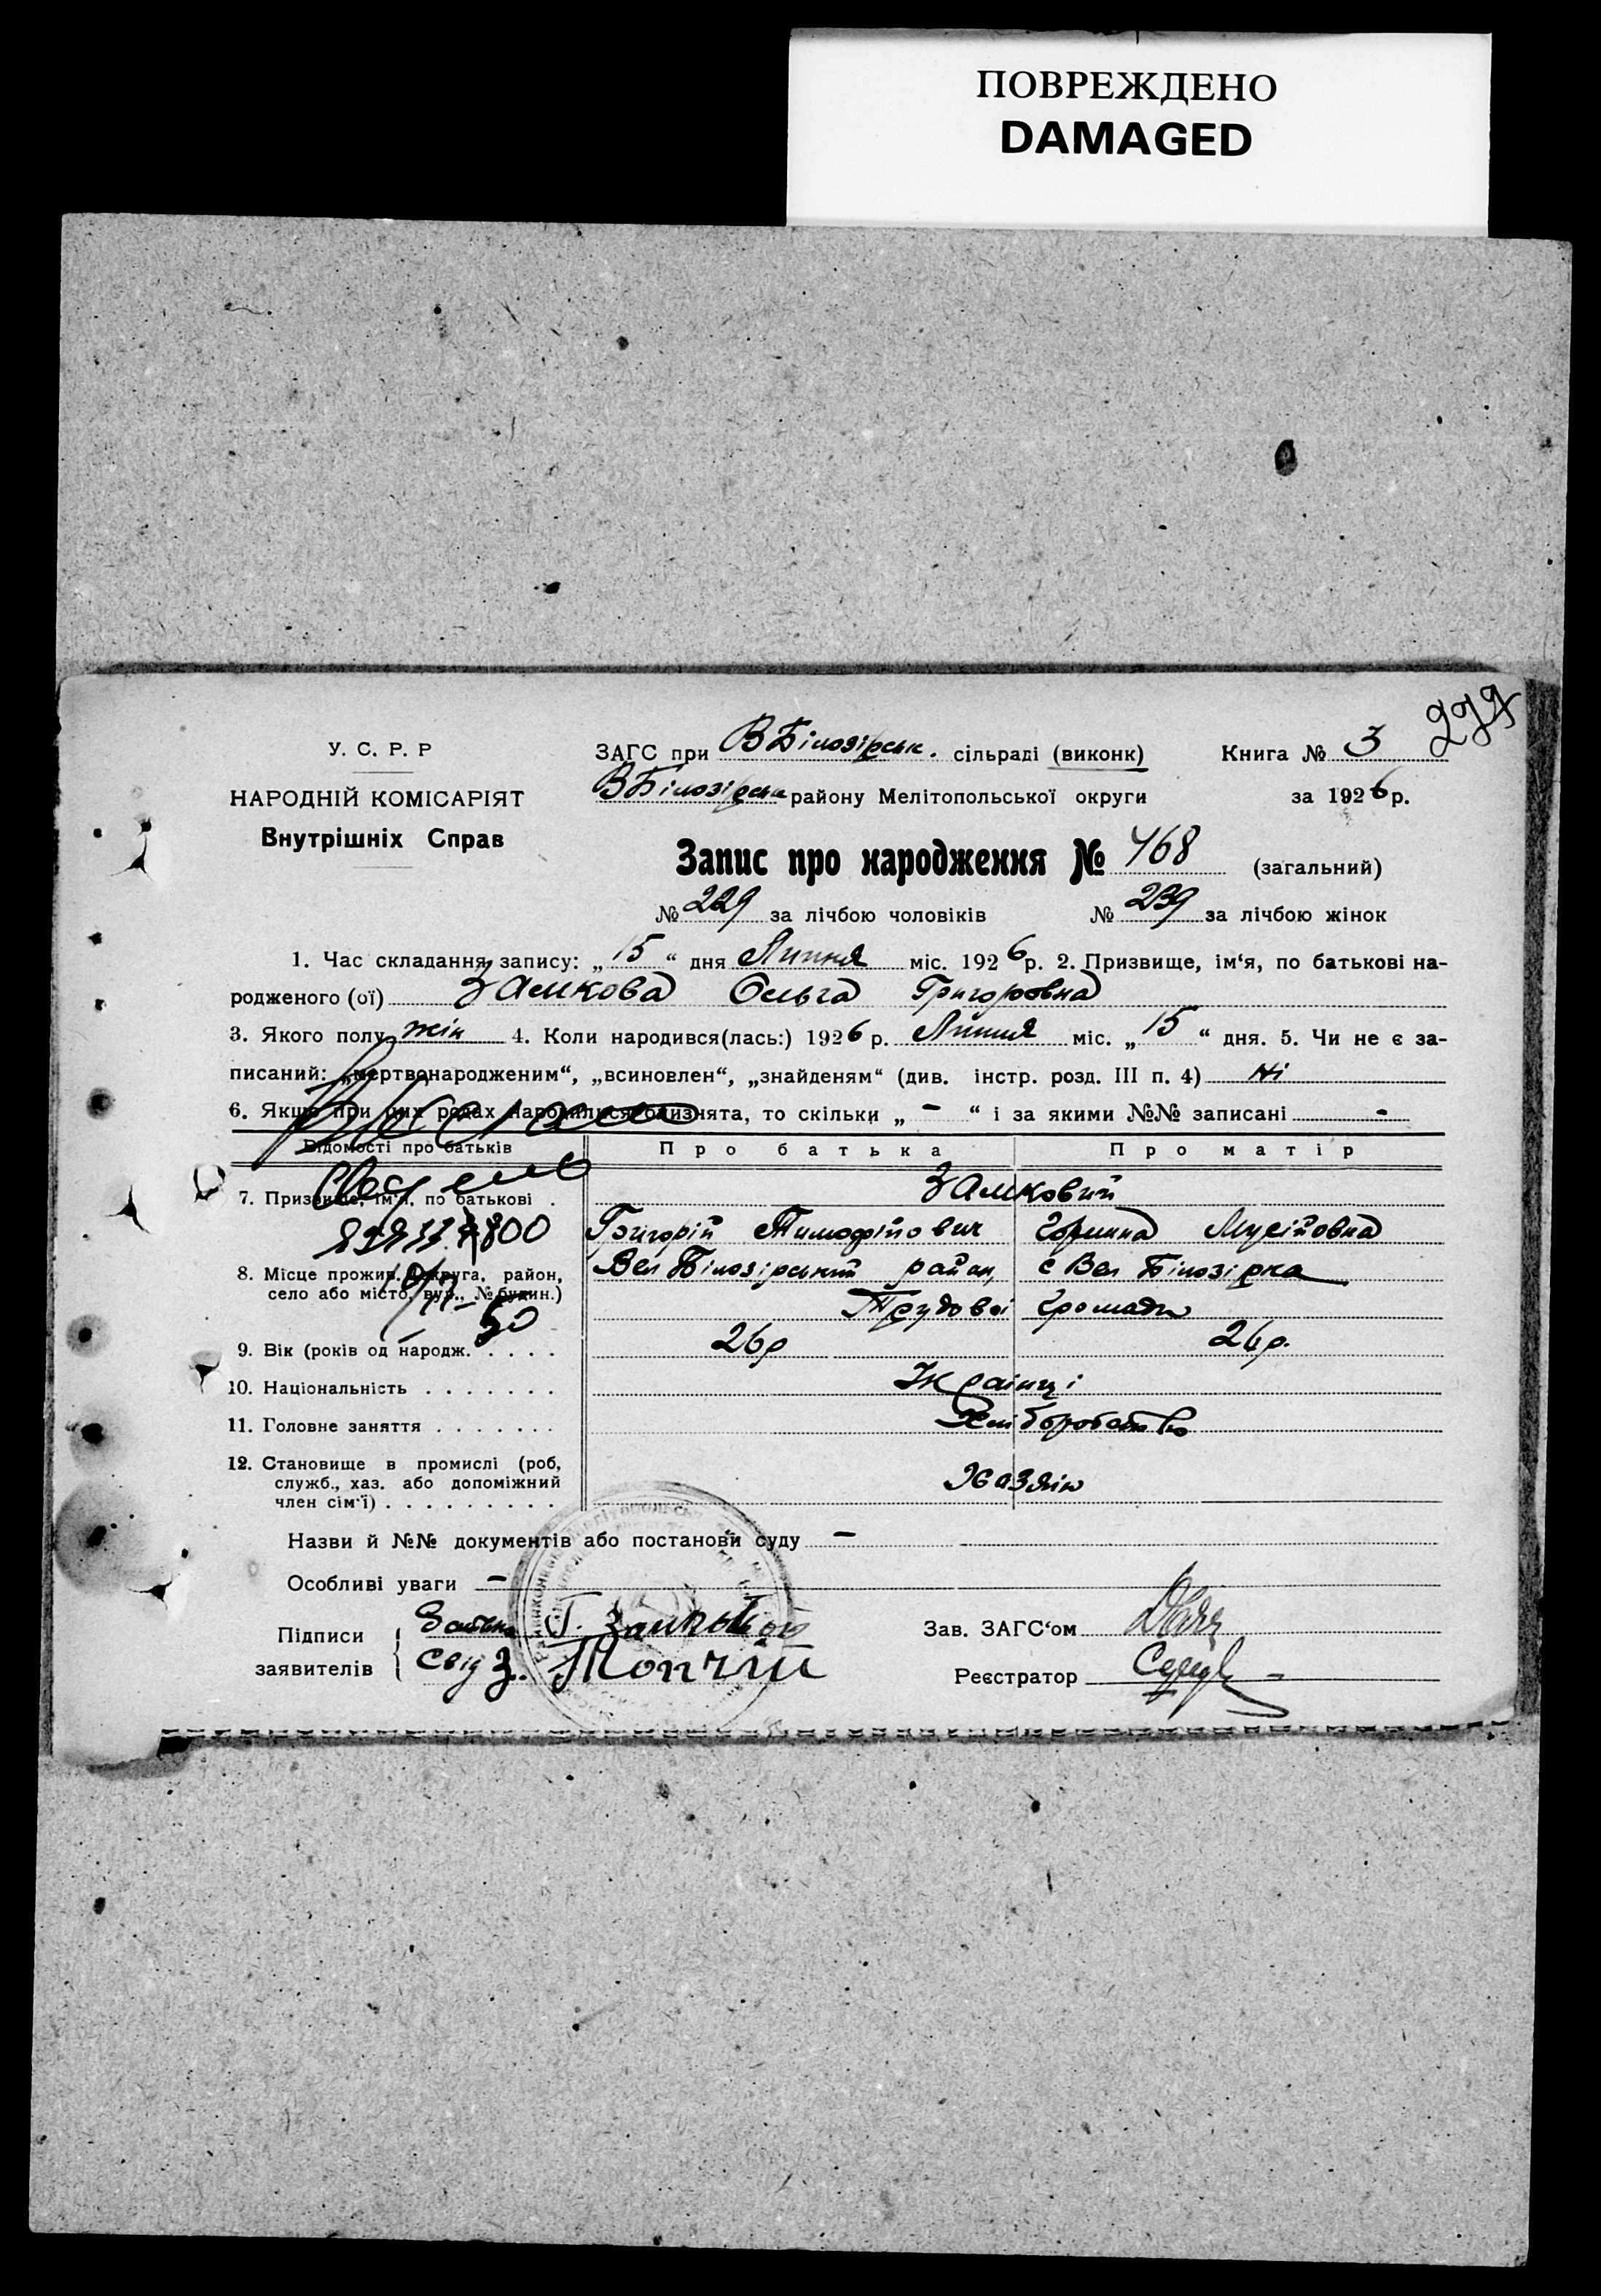 ПОВРЕЖДЕНО
DAMAGED
У. С. Р. Р
НАРОДНІЙ КОМІСАРІЯТ
Внутрішніх Справ
ЗАГС при ВБілозірськ. сільраді (виконк)
ВБілозірськ району Мелітопольської округи
Книга № 3
за 1926 р.
Запис про народження № 468 (загальний)
№ 229 за лічбою чоловіків № 239 за лічбою жінок
1. Час складання запису: „15“ дня Липня міс. 1926 р. 2. Призвище, ім‘я, по батькові на-
родженого (ої) Замкова Ольга Григоровна
3. Якого полу жін 4. Коли народився(лась:) 1926 р. Липня міс. „15“ дня. 5. Чи не є за-
писаний: „мертвонародженим“, „всиновлен“, „знайденям“ (див. інстр. розд. III п. 4) Ні
6. Якщо при цих родах народилися близнята, то скільки „ - “ і за якими №№ записані -
Відомості про батьків Про батька Про матір
7. Призвище, ім‘я, по батькові . Замковий
Григорій Тимофійович Мусійовна
8. Місце прожив. (округа, район,
село або місто, вул., № будин.)
Вел Білозірський район, с Вел Білозірка
Трудової громади
50
9. Вік (років од народж. . . . . 26р 26р.
10. Національність . . . . . . . Українці
11. Головне заняття . . . . . . . Хліборобство
12. Становище в промислі (роб,
служб., хаз. або допоміжний
член сім‘ї) . . . . . . . . . Хазяїн
Назви й №№ документів або постанови суду -
Особливі уваги -
Підписи
заявителів
Г. Замковой
Свід
Зав. ЗАГС‘ом
Реєстратор